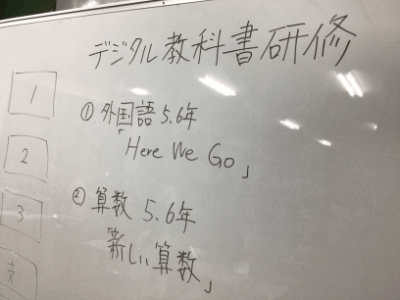 デジタル教科書研修
1
① 外国語 5.6年
「Here We Go」
2
② 算数 5.6年
3
新しい算数」